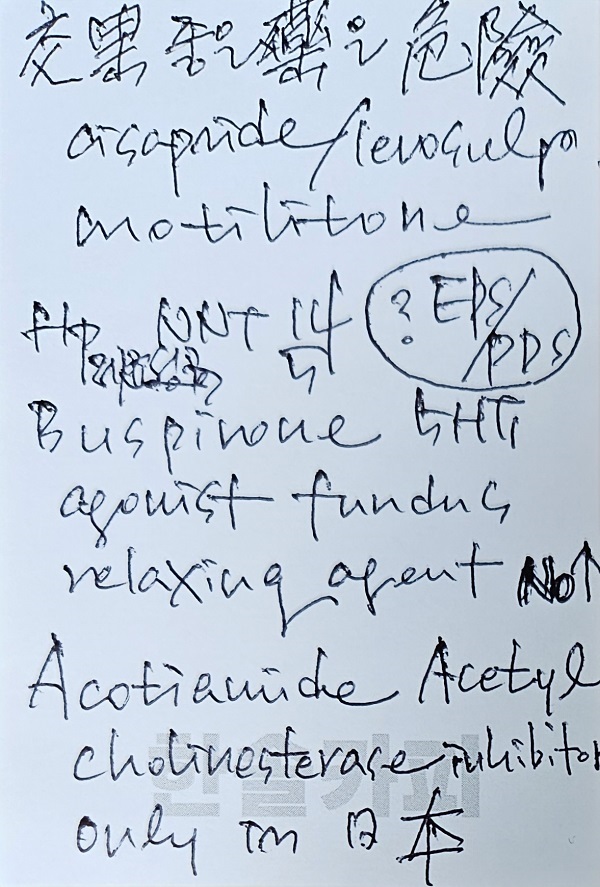 果 藥 危險
cisapride/levosulp
motilitone
Hp NNT 14 ? EPS/
PDS
Buspirone 5HT1
agonist fundus
relaxing agent No↑
Acotiamide Acetyl
cholinesterase inhibitor
only in 日本
한솔가피